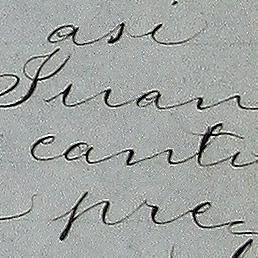 asi
Juan
cantu
preg